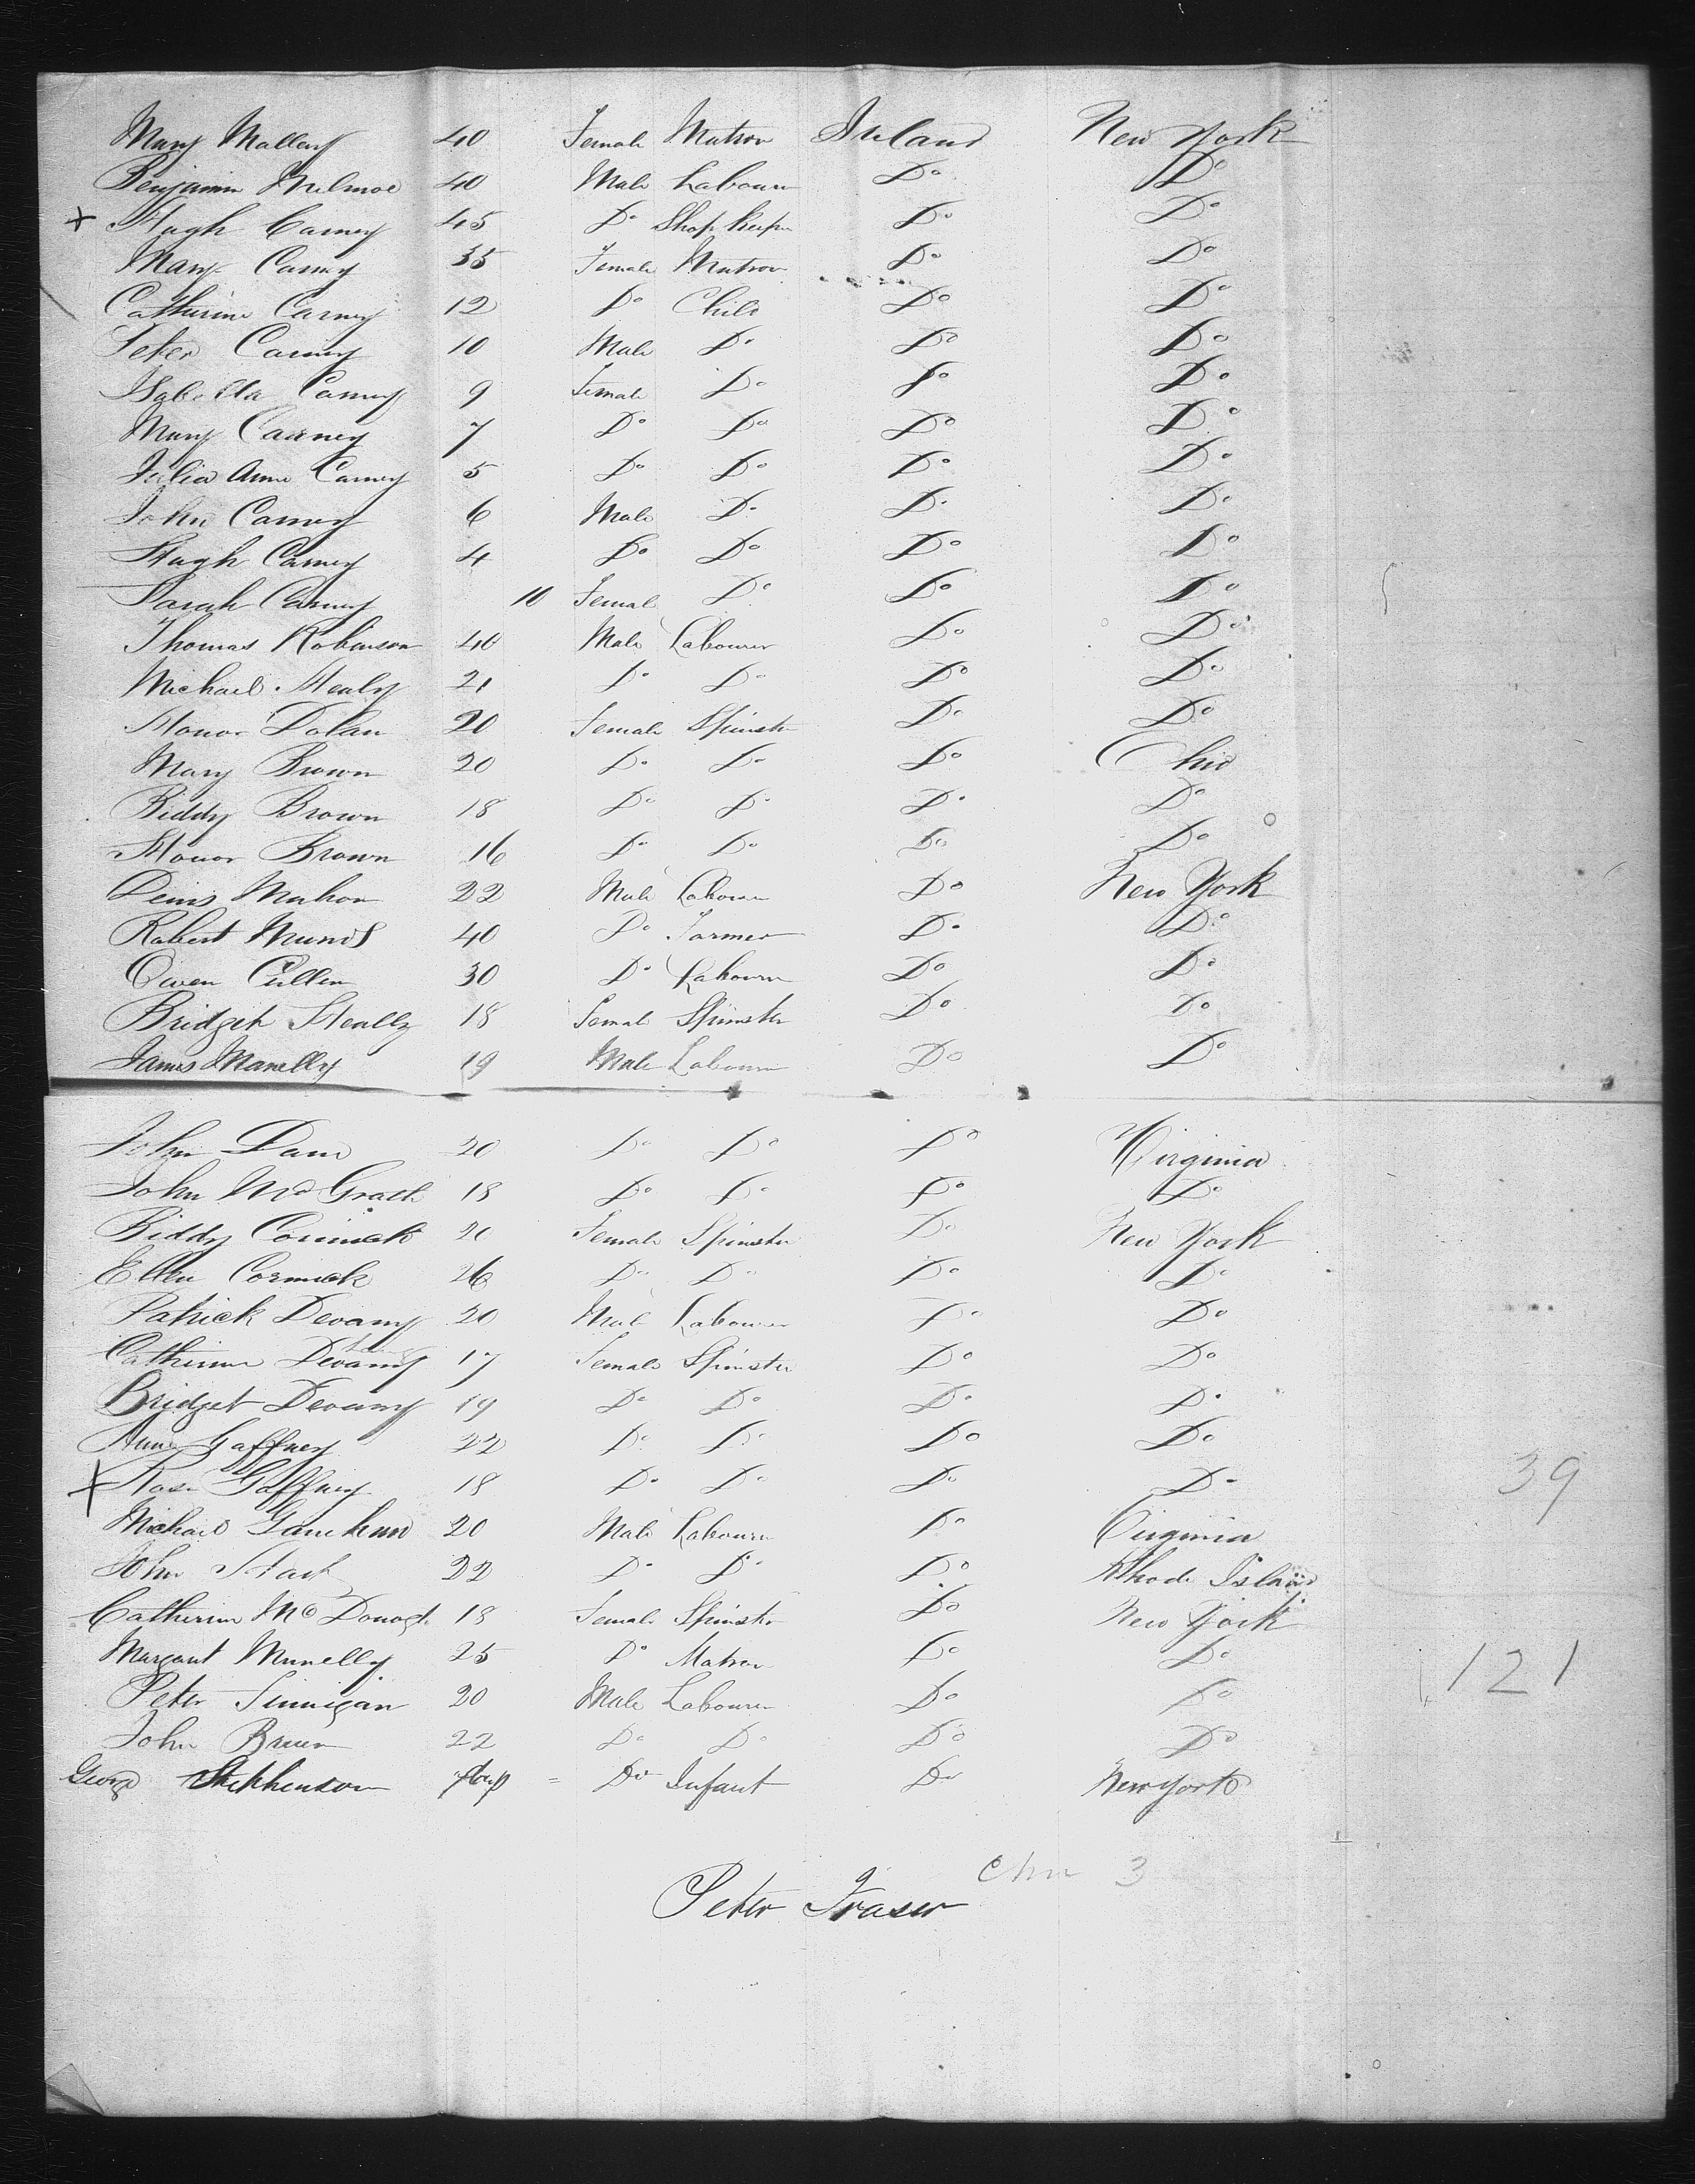 Mary Mallery 40 Female Matron Ireland New York
Benjamin Milmoe 40 Male Labourer Do Do
x Hugh Carney 45 Do Shop keeper Do Do
Mary Carney 35 Female Matron Do Do
Catherine Carney 12 Do Child Do Do
Peter Carney 10 Male Do Do Do
Isabella Carney 9 Female Do Do Do
Mary Caarney 7 Do Do Do Do
Julia Anne Carney 5 Do Do Do Do
John Carney 6 Male Do Do Do
Hugh Carney 4 Do Do Do Do
Sarah Carney 10 Female Do Do Do
Thomas Robinson 40 Male Labourer Do Do
Michael Healy 21 Do Do Do Do
Honor Dolan 20 Female Spinster Do Do
Mary Brown 20 Do Do Do Ohio
Biddy Brown 18 Do Do Do Do
Honor Brown 16 Do Do Do Do
Denis Mahon 22 Male Labourer Do New York
Robert 40 Do Farmer Do Do
Owen Cullen 30 Do Labourer Do Do
Bridget Healy 18 Female Spinster Do Do
James Manelly 19 Male Labourer Do Do
John 20 Do Do Do Virginia
John McGrath 18 Do Do Do Do
Biddy Cormick 20 Female Spinster Do New York
Ellen Cormick 26 Do Do Do Do
Patrick Devany 20 Male Labourer Do Do
Catherine Devany 17 Female Spinster Do Do
Bridget Devany 19 Do Do Do Do
Anne Gaffney 22 Do Do Do Do
x Rose Gaffney 18 Do Do Do Do 39
Michael 20 Male Labourer Do Virginia
John 22 Do Do Do Rhode Island
Catherine McDonogh 18 Female Spinster Do New York
Margaret Munelly 25 Do Matron Do Do 121
Peter Finnigan 20 Male Labourer Do Do
John Bruen 22 Do Do Do Do
George Stephenson = Do Infant Do New York
3
Peter Fraser